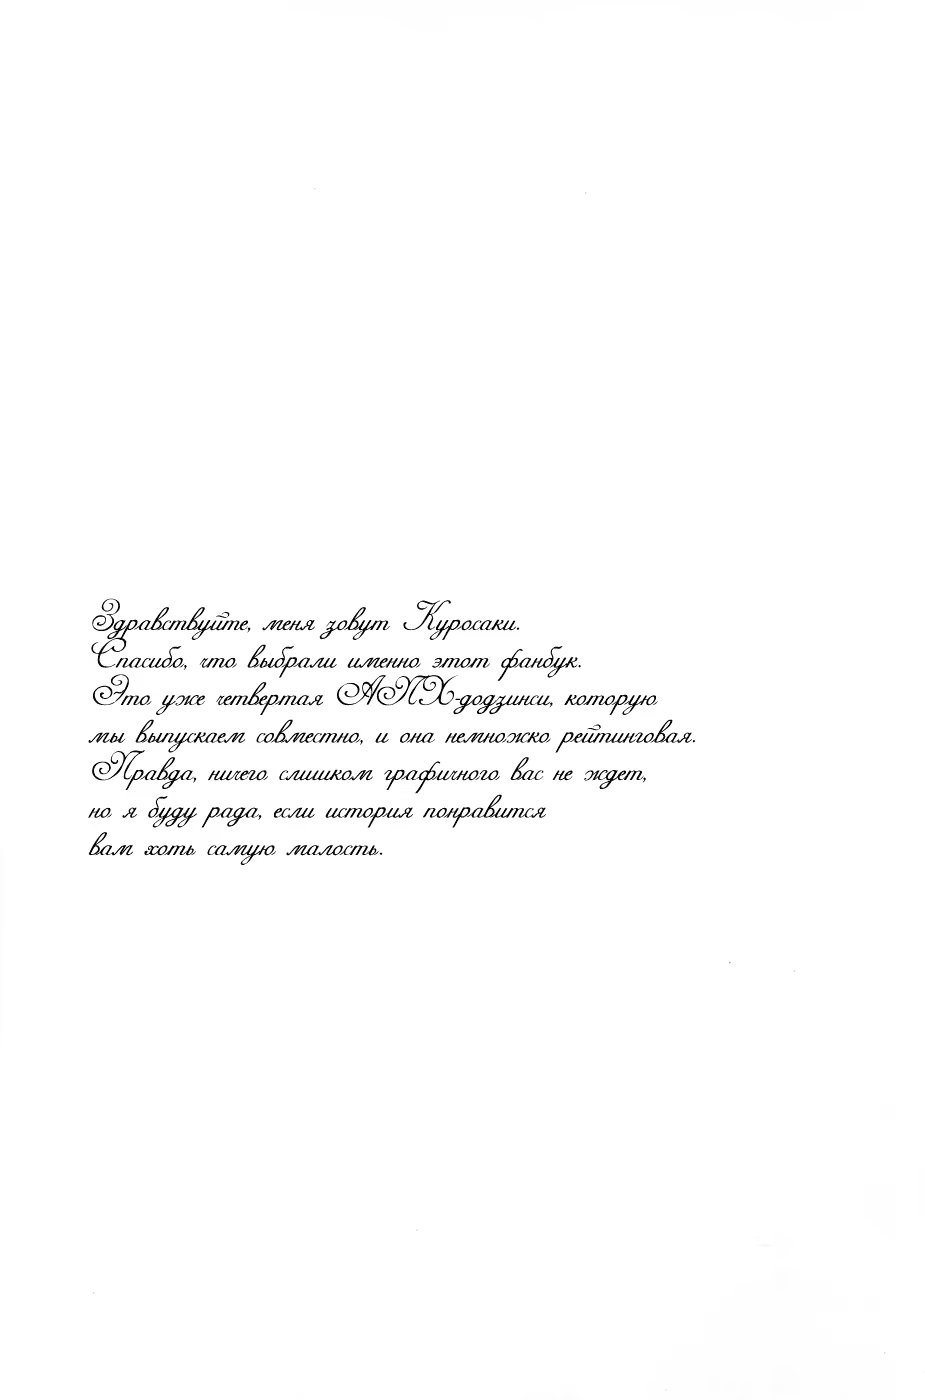 Здравствуйте, меня зовут Куросаки.
Спасибо, что выбрали именно этот фанбук.
Это уже четвертая АПХ-додзинси, которую
мы выпускаем совместно, и она немножко рейтинговая.
Правда, ничего слишком графичного вас не ждет,
но я буду рада, если история понравится
вам хоть самую малость.